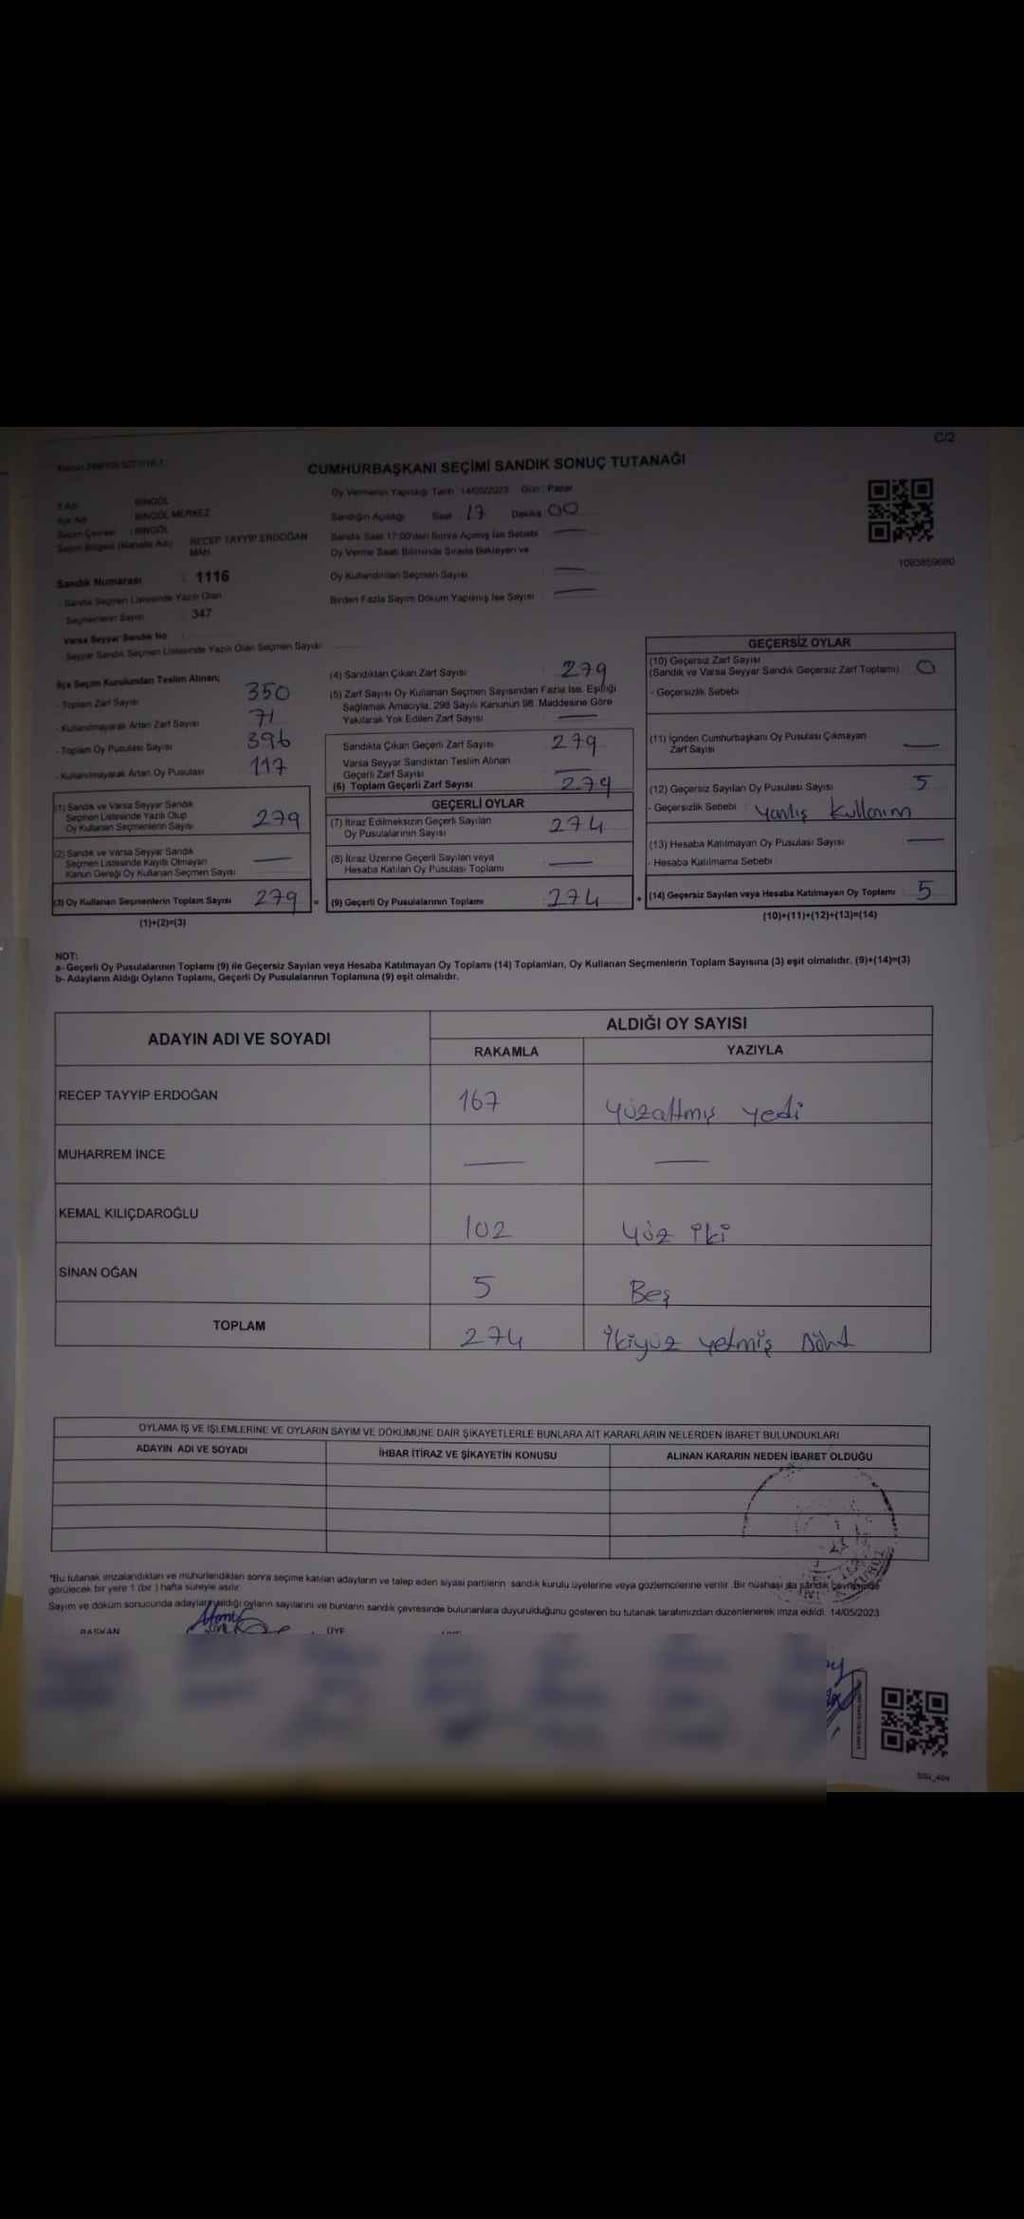 C/2
CUMHURBAŞKANI SEÇİMİ SANDIK SONUÇ TUTANAĞI
İl Adı BİNGÖL
İlçe Adı BİNGÖL MERKEZ
Seçim Çevresi : BİNGÖL
Seçim Bölgesi (Mahalle Adı) RECEP TAYYİP ERDOĞAN MAH.
Sandık Numarası : 1116
- Sandık Seçmen Listesinde Yazılı Olan
Seçmenlerin Sayısı : 347
Varsa Seyyar Sandık No
- Seyyar Sandık Seçmen Listesinde Yazılı Olan Seçmen Sayısı
Oy Vermenin Yapıldığı Tarih 14/05/2023 Gün : Pazar
Sandığın Açıldığı Saat 17 Dakika 00
Sandık Saat 17:00'den Sonra Açılmış İse Sebebi
Oy Verme Saati Bitiminde Sırada Bekleyen ve
Oy Kullandırılan Seçmen Sayısı
Birden Fazla Sayım Döküm Yapılmış İse Sayısı
1093859680
İlçe Seçim Kurulundan Teslim Alınan;
- Toplam Zarf Sayısı 350
- Kullanılmayarak Artan Zarf Sayısı 71
- Toplam Oy Pusulası Sayısı 396
- Kullanılmayarak Artan Oy Pusulası 117
(1) Sandık ve Varsa Seyyar Sandık
Seçmen Listesinde Yazılı Olup
Oy Kullanan Seçmenlerin Sayısı 279
(2) Sandık ve Varsa Seyyar Sandık
Seçmen Listesinde Kayıtlı Olmayan
Kanun Gereği Oy Kullanan Seçmen Sayısı —
(3) Oy Kullanan Seçmenlerin Toplam Sayısı 279 =
(1)+(2)=(3)
(4) Sandıktan Çıkan Zarf Sayısı 279
(5) Zarf Sayısı Oy Kullanan Seçmen Sayısından Fazla İse, Eşitliği
Sağlamak Amacıyla, 298 Sayılı Kanunun 98. Maddesine Göre
Yakılarak Yok Edilen Zarf Sayısı —
Sandıkta Çıkan Geçerli Zarf Sayısı 279
Varsa Seyyar Sandıktan Teslim Alınan
Geçerli Zarf Sayısı —
(6) Toplam Geçerli Zarf Sayısı 279
GEÇERLİ OYLAR
(7) İtiraz Edilmeksizin Geçerli Sayılan
Oy Pusulalarının Sayısı 274
(8) İtiraz Üzerine Geçerli Sayılan veya
Hesaba Katılan Oy Pusulası Toplamı —
(9) Geçerli Oy Pusulalarının Toplamı 274 +
GEÇERSİZ OYLAR
(10) Geçersiz Zarf Sayısı
(Sandık ve Varsa Seyyar Sandık Geçersiz Zarf Toplamı) 0
- Geçersizlik Sebebi
(11) İçinden Cumhurbaşkanı Oy Pusulası Çıkmayan
Zarf Sayısı —
(12) Geçersiz Sayılan Oy Pusulası Sayısı 5
- Geçersizlik Sebebi : yanlış kullanım
(13) Hesaba Katılmayan Oy Pusulası Sayısı —
- Hesaba Katılmama Sebebi
(14) Geçersiz Sayılan veya Hesaba Katılmayan Oy Toplamı 5
(10)+(11)+(12)+(13)=(14)
NOT:
a- Geçerli Oy Pusulalarının Toplamı (9) ile Geçersiz Sayılan veya Hesaba Katılmayan Oy Toplamı (14) Toplamları, Oy Kullanan Seçmenlerin Toplam Sayısına (3) eşit olmalıdır. (9)+(14)=(3)
b- Adayların Aldığı Oyların Toplamı, Geçerli Oy Pusulalarının Toplamına (9) eşit olmalıdır.
ADAYIN ADI VE SOYADI ALDIĞI OY SAYISI
RAKAMLA YAZIYLA
RECEP TAYYİP ERDOĞAN 167 yüzaltmış yedi
MUHARREM İNCE — —
KEMAL KILIÇDAROĞLU 102 yüz iki
SİNAN OĞAN 5 Beş
TOPLAM 274 ikiyüz yetmiş Dört
OYLAMA İŞ VE İŞLEMLERİNE VE OYLARIN SAYIM VE DÖKÜMÜNE DAİR ŞİKAYETLERLE BUNLARA AİT KARARLARIN NELERDEN İBARET BULUNDUKLARI
ADAYIN ADI VE SOYADI İHBAR İTİRAZ VE ŞİKAYETİN KONUSU ALINAN KARARIN NEDEN İBARET OLDUĞU
"Bu tutanak imzalandıktan ve mühürlendikten sonra seçime katılan adayların ve talep eden siyasi partilerin sandık kurulu üyelerine veya gözlemcilerine verilir. Bir nüshası da sandık çevresinde
görülecek bir yere 1 (bir) hafta süreyle asılır.
Sayım ve döküm sonucunda adayların aldığı oyların sayılarını ve bunların sandık çevresinde bulunanlara duyurulduğunu gösteren bu tutanak tarafımızdan düzenlenerek imza edildi. 14/05/2023
BAŞKAN ÜYE